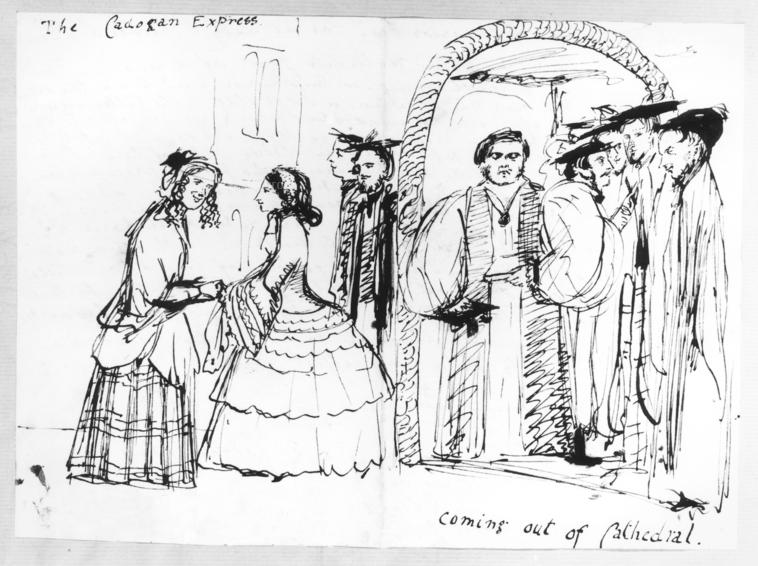 The Cadogan Express.
coming out of Cathedral.